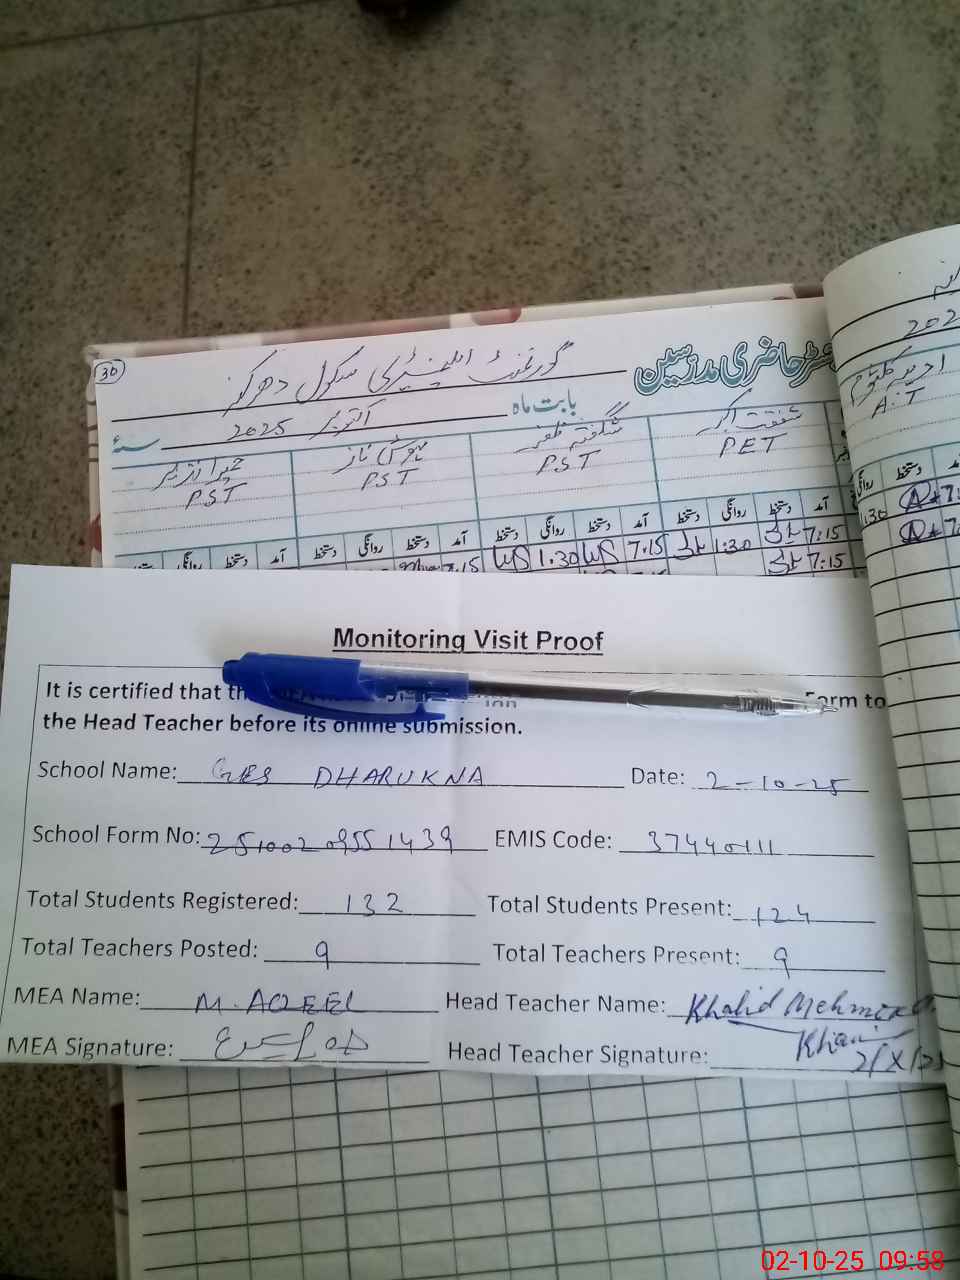 30
گورنمنٹ ایلیمنٹری سکول دھرکنہ
رجسٹر حاضری مدرسین
بابت ماہ اکتوبر 2025 سنہ
202
حمیرا
PST
ناز
PST
شگفتہ ظفر
PST
شفقت
PET
A.T
دستخط روانگی دستخط آمد
7.15 1.30 7.15 1:30 7:15 1:30
7:15
Monitoring Visit Proof
It is certified that Form to
the Head Teacher before its online submission.
School Name: GES DHARUKNA Date: 2-10-25
School Form No: 2510020955 1439 EMIS Code: 37440111
Total Students Registered: 132 Total Students Present: 124
Total Teachers Posted: 9 Total Teachers Present: 9
MEA Name: M. AQEEL Head Teacher Name: Khalid Mehmood
MEA Signature: Head Teacher Signature: Khan
2/X/25
02-10-25 09:58